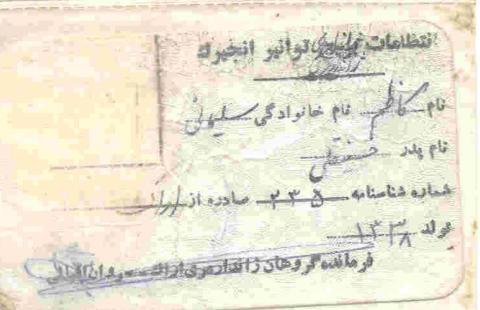 انتظامات توانیر انجیرک
نام کاظم نام خانوادگی سلیمانی
نام پدر حسنعلی
شماره شناسنامه ۲۳۵ صادره از اراک
تولد ۱۳۳۸
فرمانده گروهان ژاندارمری اراک سروان